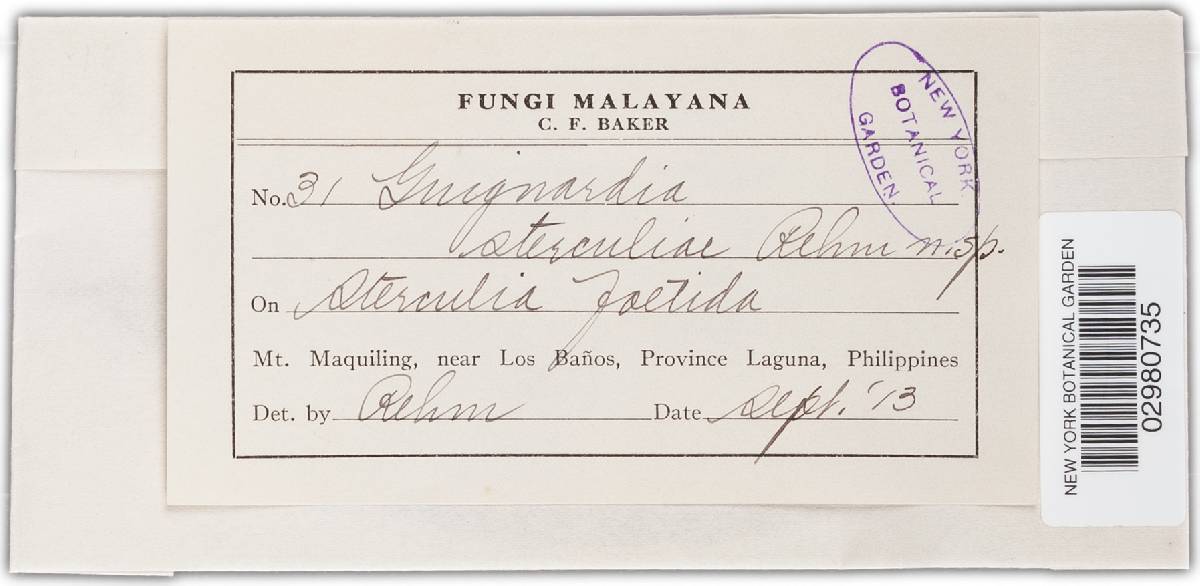 FUNGI MALAYANA
C. F. BAKER
No. 31 Guignardia
sterculiae Rehm n. sp.
On Sterculia foetida
Mt. Maquiling, near Los Baños, Province Laguna, Philippines
Det. by Rehm Date Sept. '13
NEW YORK
BOTANICAL
GARDEN.
NEW YORK BOTANICAL GARDEN
02980735